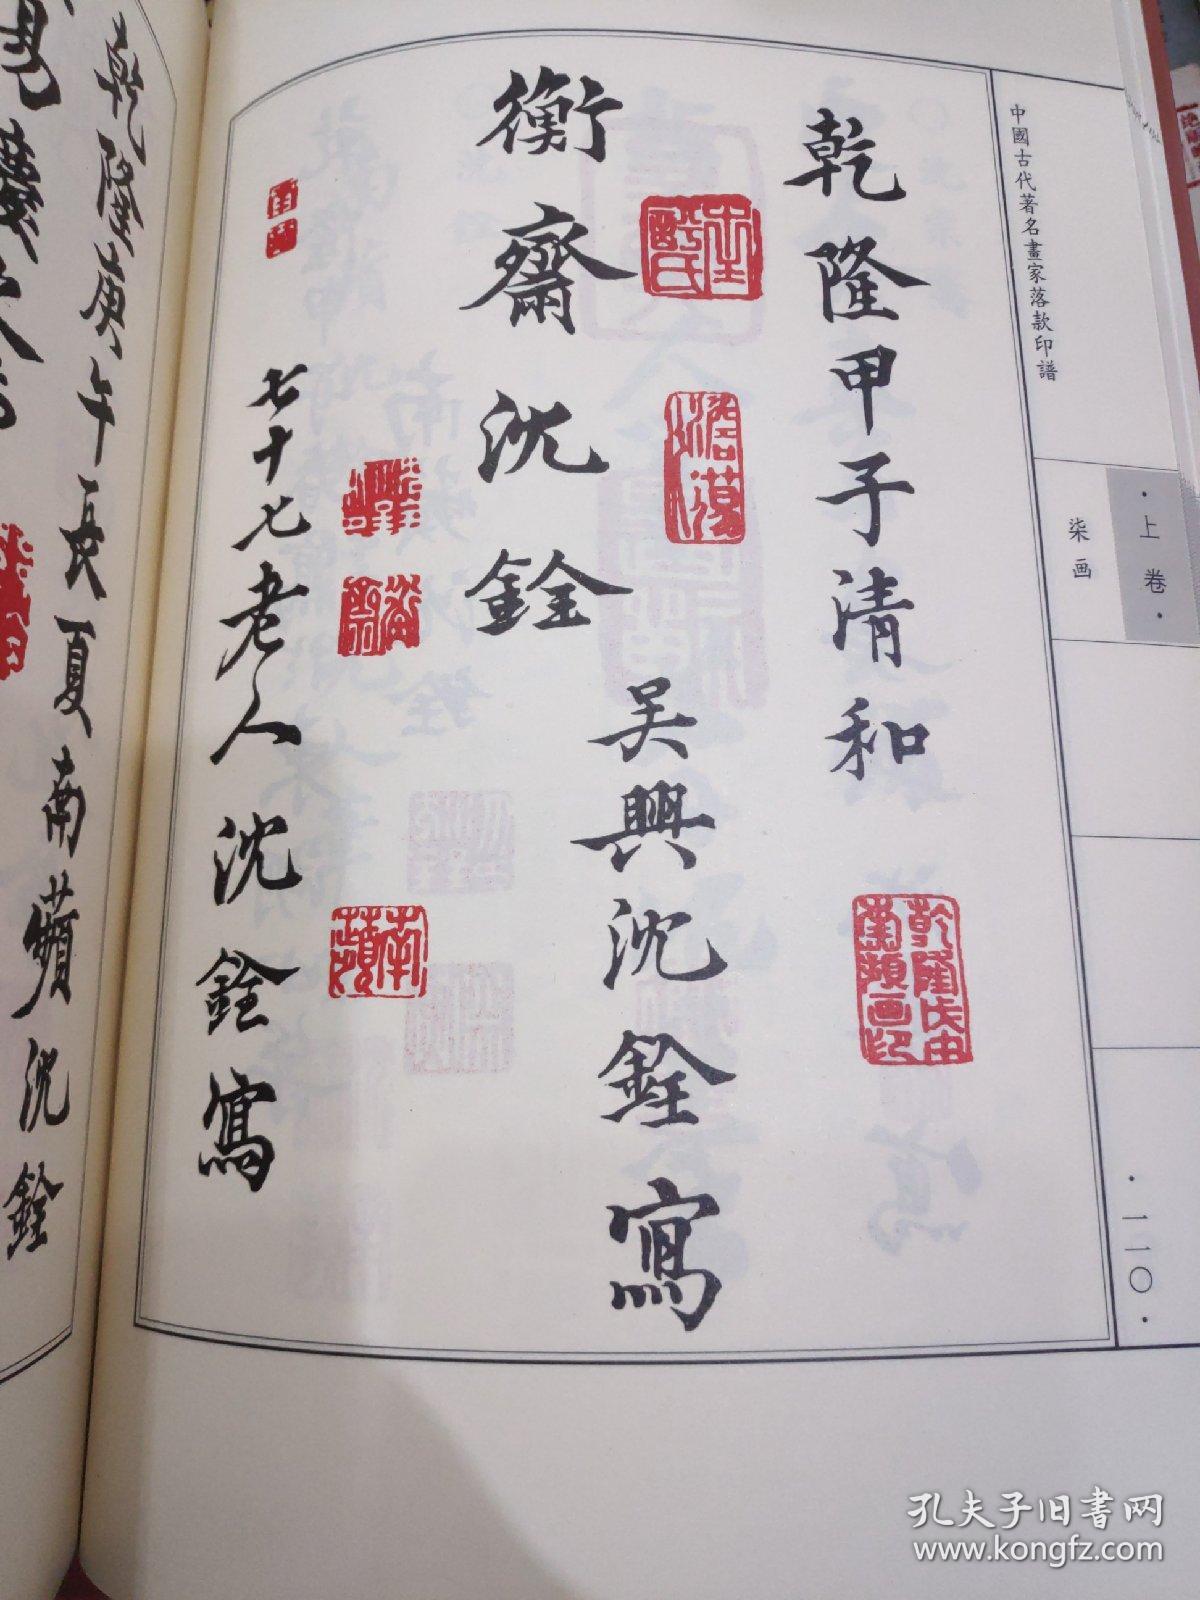 中國古代著名畫家落款印譜
·上卷·
柒画
·一一〇·
乾隆甲子清和
吴興沈銓寫
衡齋沈銓
七十七老人沈銓寫
乾隆戊申
南蘋画印
南蘋
乾隆庚午長夏南蘋沈銓
孔夫子旧书网
www.kongfz.com